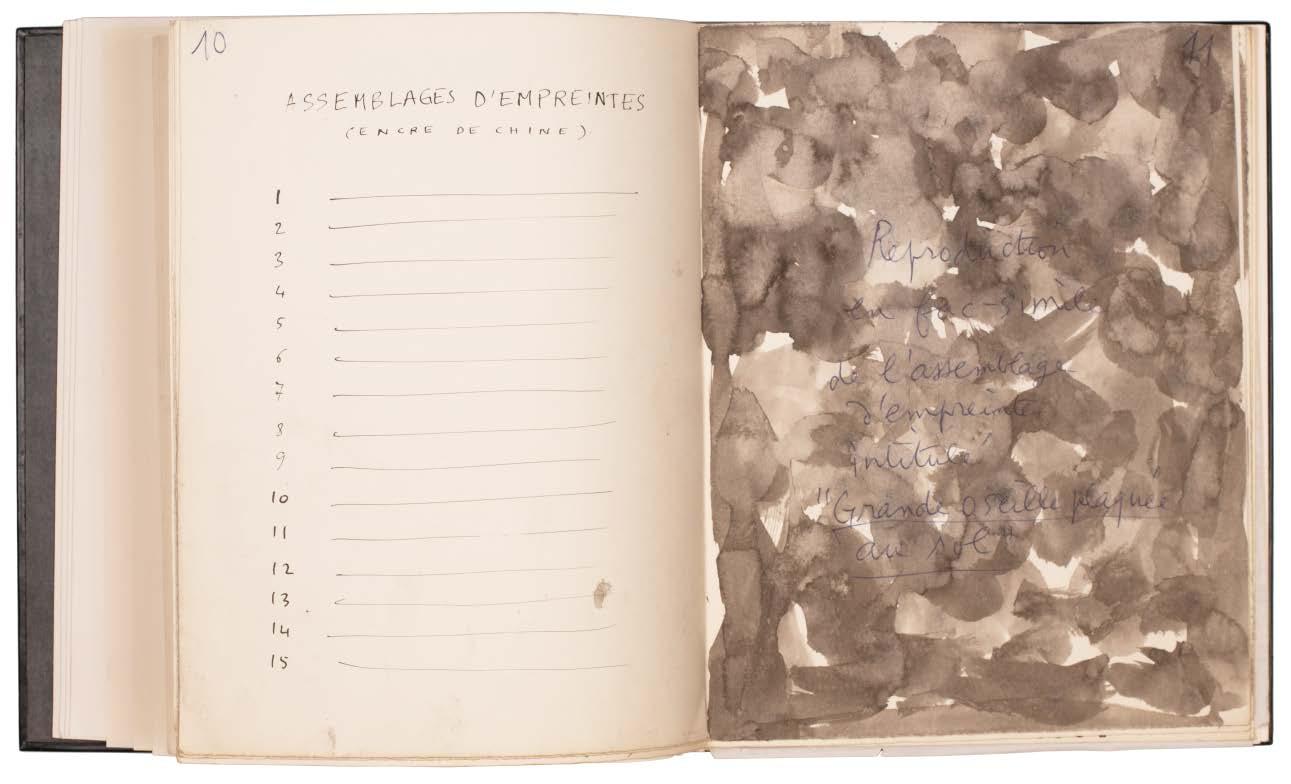 10
ASSEMBLAGES D'EMPREINTES
(ENCRE DE CHINE).
1
2
3
4
5
6
7
8
9
10
11
12
13
14
15
11
Reproduction
en fac-simile
de l'assemblage
d'empreintes
intitulé
"Grande oseille plaquée
au sol"